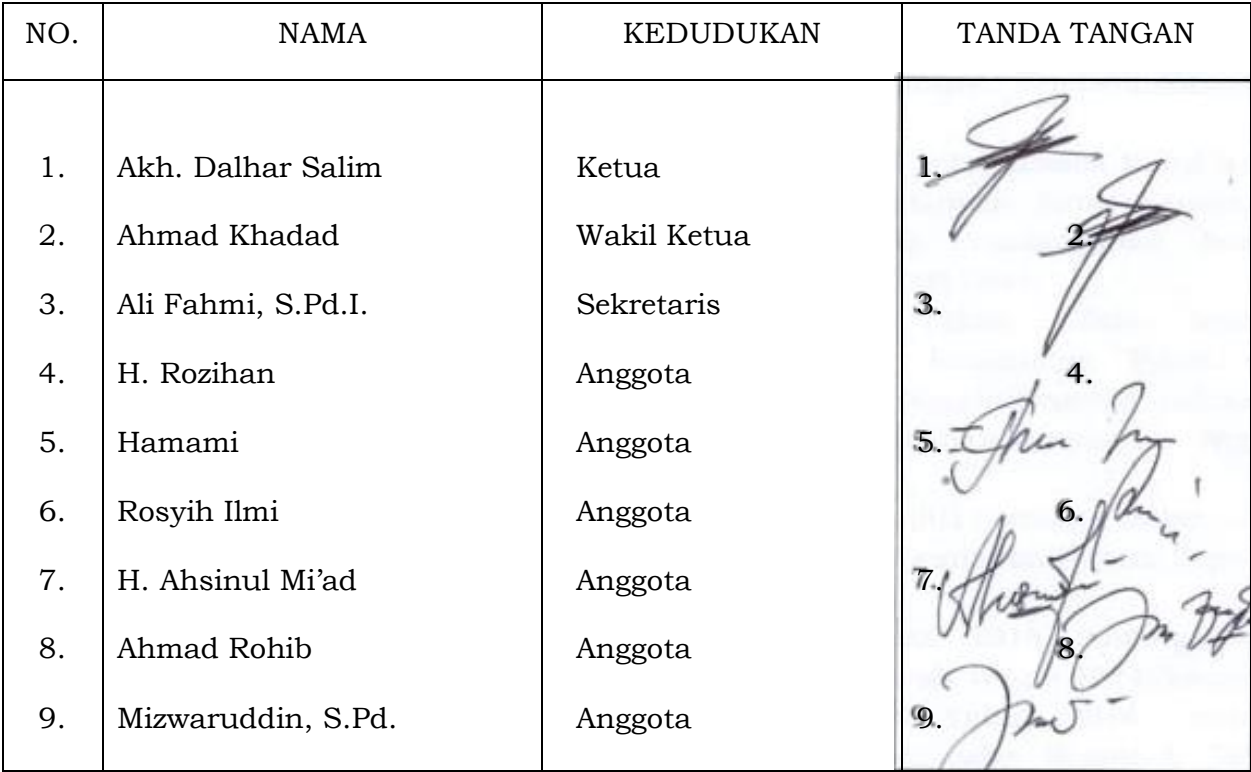 NO. NAMA KEDUDUKAN TANDA TANGAN
1. Akh. Dalhar Salim Ketua 1.
2. Ahmad Khadad Wakil Ketua 2.
3. Ali Fahmi, S.Pd.I. Sekretaris 3.
4. H. Rozihan Anggota 4.
5. Hamami Anggota 5.
6. Rosyih Ilmi Anggota 6.
7. H. Ahsinul Mi’ad Anggota 7.
8. Ahmad Rohib Anggota 8.
9. Mizwaruddin, S.Pd. Anggota 9.